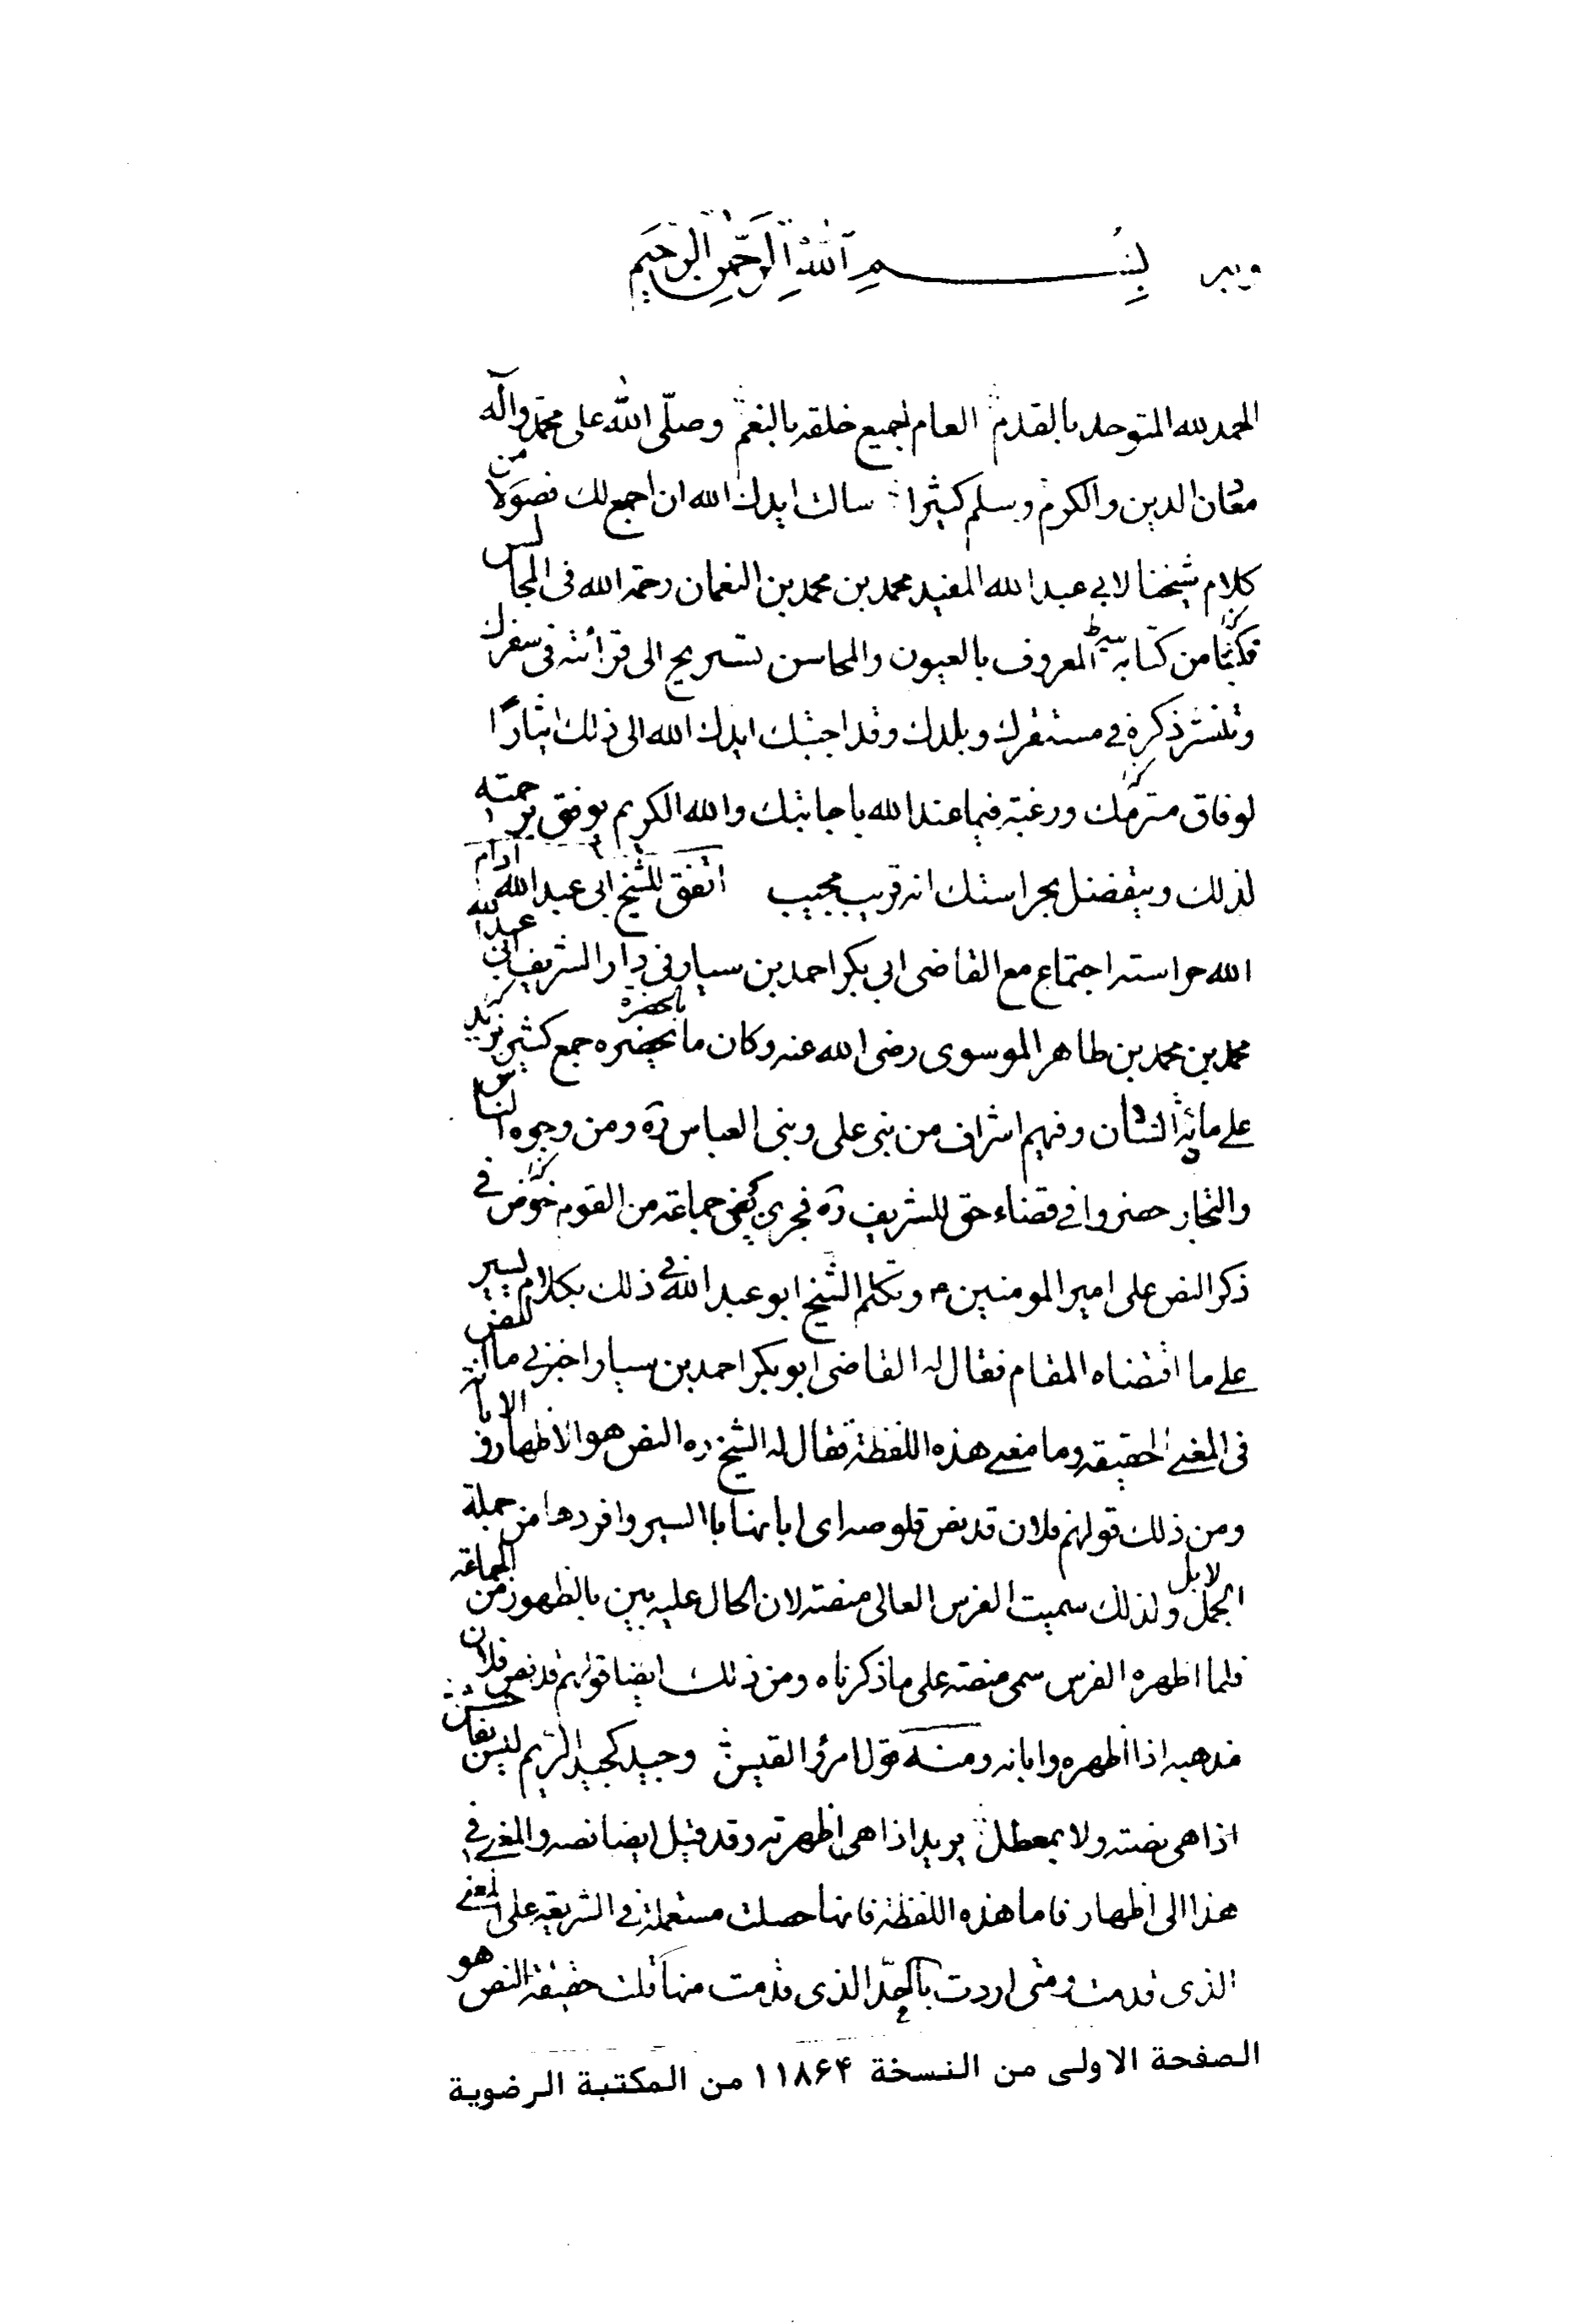 بِسْمِ اللهِ الرَّحْمنِ الرَّحِيمِ
الحمد لله المتوحد بالقدم العام لجميع خلقه بالنعم وصلّى الله على محمّد وآله
معادن الدين والكرم وسلم كثيرا سالت ايدك الله ان اجمع لك فصولا من
كلام شيخنا لابي عبد الله المفيد محمد بن محمد بن النعمان رحمه الله فى المجالس
من كتابه المعروف بالعيون والمحاسن تستريح الى قرائته فى سفرك
وتنشر ذكره في مستقرك وبلدك وقد اجبتك ايدك الله الى ذلك ايثارًا
لوفاق ورغبة فيما عند الله باجابتك والله الكريم يوفق برحمته
لذلك ويتفضل بحراستك انه قريب مجيب اتفق للشيخ ابى عبد الله ادام
الله حراسته اجتماع مع القاضى ابي بكر احمد بن سيار في دار الشريف ابى عبد الله
محمد بن محمد بن طاهر الموسوى رضى الله عنه وكان بالحضرة جمع كثير يزيد
على مائة انسان وفيهم اشراف من بنى على وبنى العباس ره ومن وجوه الناس
والتجار حضروا في قضاء حق للشريف ره فجرى جماعة من القوم خوض فى
ذكر النص على امير المومنين ع وتكلم الشيخ ابو عبد الله فى ذلك بكلام يسير
على ما اقتضاه المقام فقال له القاضى ابو بكر احمد بن سيار اخبرني ما النص
فى المعنى الحقيقة وما معنى هذه اللفظة فقال له الشيخ ره النص هو الاظهار والابانة
ومن ذلك قولهم فلان قد نص قلوصه اى ابانها بالسير وافردها من جملة
الابل ولذلك سميت الفرس العالى منصة لان الحال عليه يبين بالظهور من الجماعة
فلما اظهره الفرس سمى منصة على ما ذكرناه ومن ذلك ايضا قولهم قد نص فلان
مذهبه اذا اظهره وابانه ومنه قول امرؤ القيس وجيد كجيد الريم ليس بفاحش
اذا هى نصته ولا بمعطل يريد اذا هى اظهرته وقد قيل ايضا نصه والمعنى في
هذا الى اظهار فاما هذه اللفظة فانها حصلت مستعملة في الشريعة على المعنى
الذى قدمت ومتى اردت الحدّ الذى قدمت منها قلت حقيقة النص هو
الصفحة الاولى من النسخة ۱۱۸۶۴ من المكتبة الرضوية